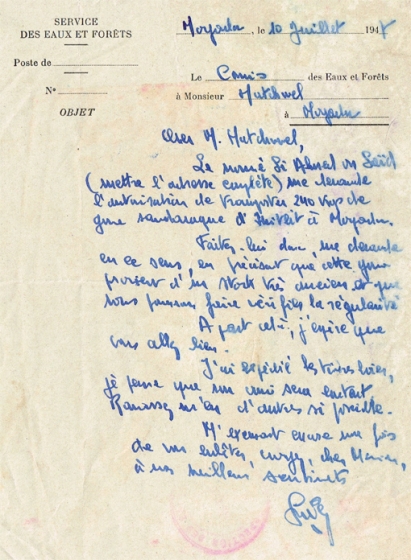 SERVICE
DES EAUX ET FORÊTS
Mogador, le 10 Juillet 1947
Poste de
Le Commis des Eaux et Forêts
N°
à Monsieur Mutchwel
OBJET
à Mogador
Cher M. Mutchwel,
Le nommé Si Ahmed ou Saïd
(mettre l'adresse complète) me demande
l'autorisation de transporter 240 kgs de
gomme sandaraque d' à Mogador.
Faites-lui donc une demande
en ce sens, en précisant que cette gomme
provient d'un stock très ancien et que
nous pouvons faire vérifier la régularité
A part cela, j'espère que
vous allez bien.
J'ai expédié les timbres hier,
je pense que un ami sera content
Ramassez m'en d'autres si possible.
M'excusant encore une fois
de vous, cher,
à nos meilleurs sentiments